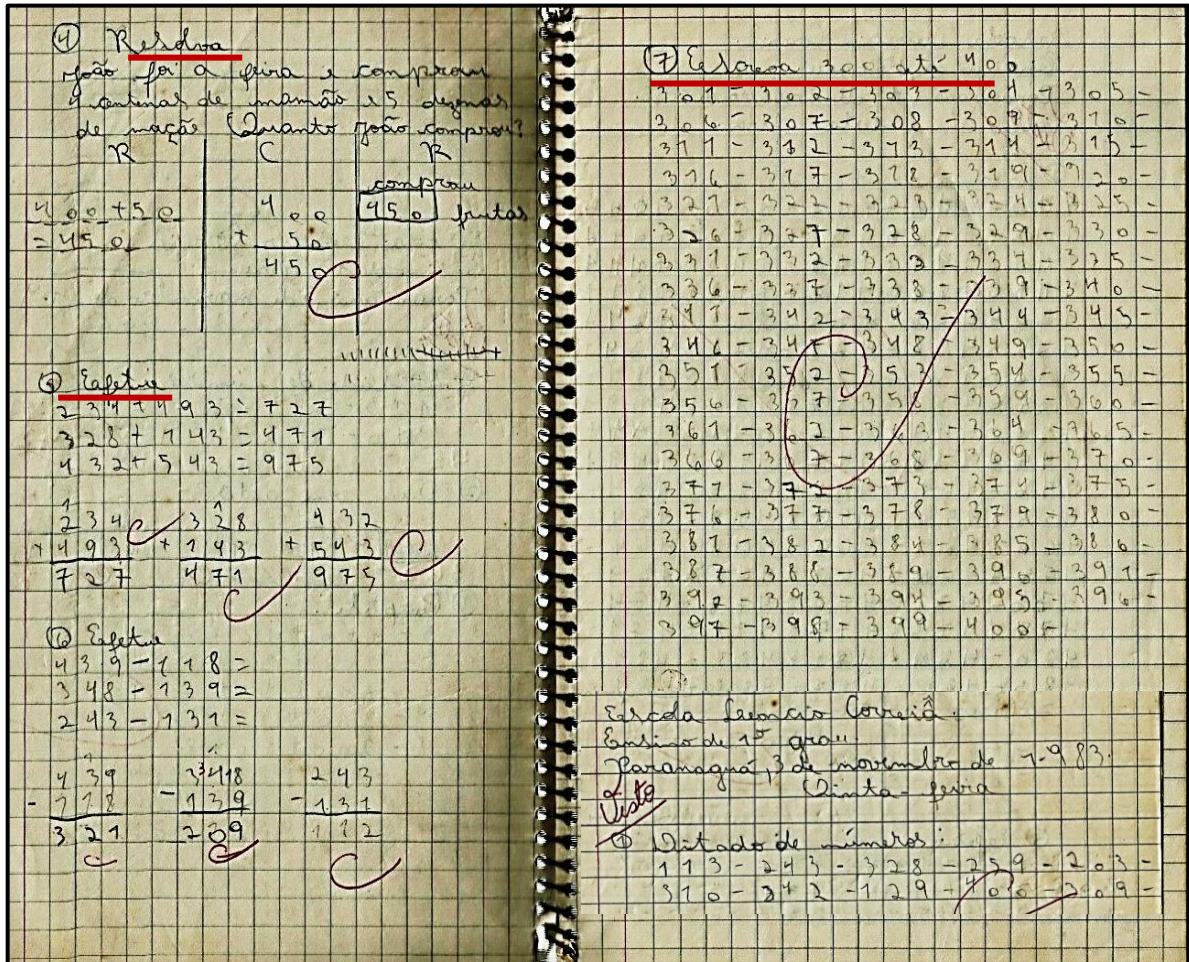 ④ Resolva
João foi a feira e comprou
4 centenas de mamão e 5 dezenas
de maçãs Quanto João comprou?
R C R
comprou
400+50 400 450 frutas
=450 + 50
450
⑤ Eafetue
234+493=727
328+143=471
432+543=975
1 1
234 328 432
+493 +143 +543
727 471 975
⑥ Eafetue
439-118=
348-139=
243-131=
439 348 243
-118 -139 -131
321 209 112
⑦ Escreva 300 até 400
301-302-303-304-305-
306-307-308-309-310-
311-312-313-314-315-
316-317-318-319-320-
321-322-323-324-325-
326-327-328-329-330-
331-332-333-334-335-
336-337-338-339-340-
341-342-343-344-345-
346-347-348-349-350-
351 352-353-354-355
356-357-358-359-360-
361-362-363-364-365-
366-367-368-369-370-
371-372-373-374-375-
376-377-378-379-380-
381-382-384-385-386-
387-388-389-390-391-
392-393-394-395-396-
397-398-399-400-
Escola Leoncio Correia.
Ensino de 1º grau.
Paranaguá, 3 de novembro de 1.983.
Quinta-feira
Visto
① Ditado de números:
113-243-328-259-203-
310-342-129-400-309-